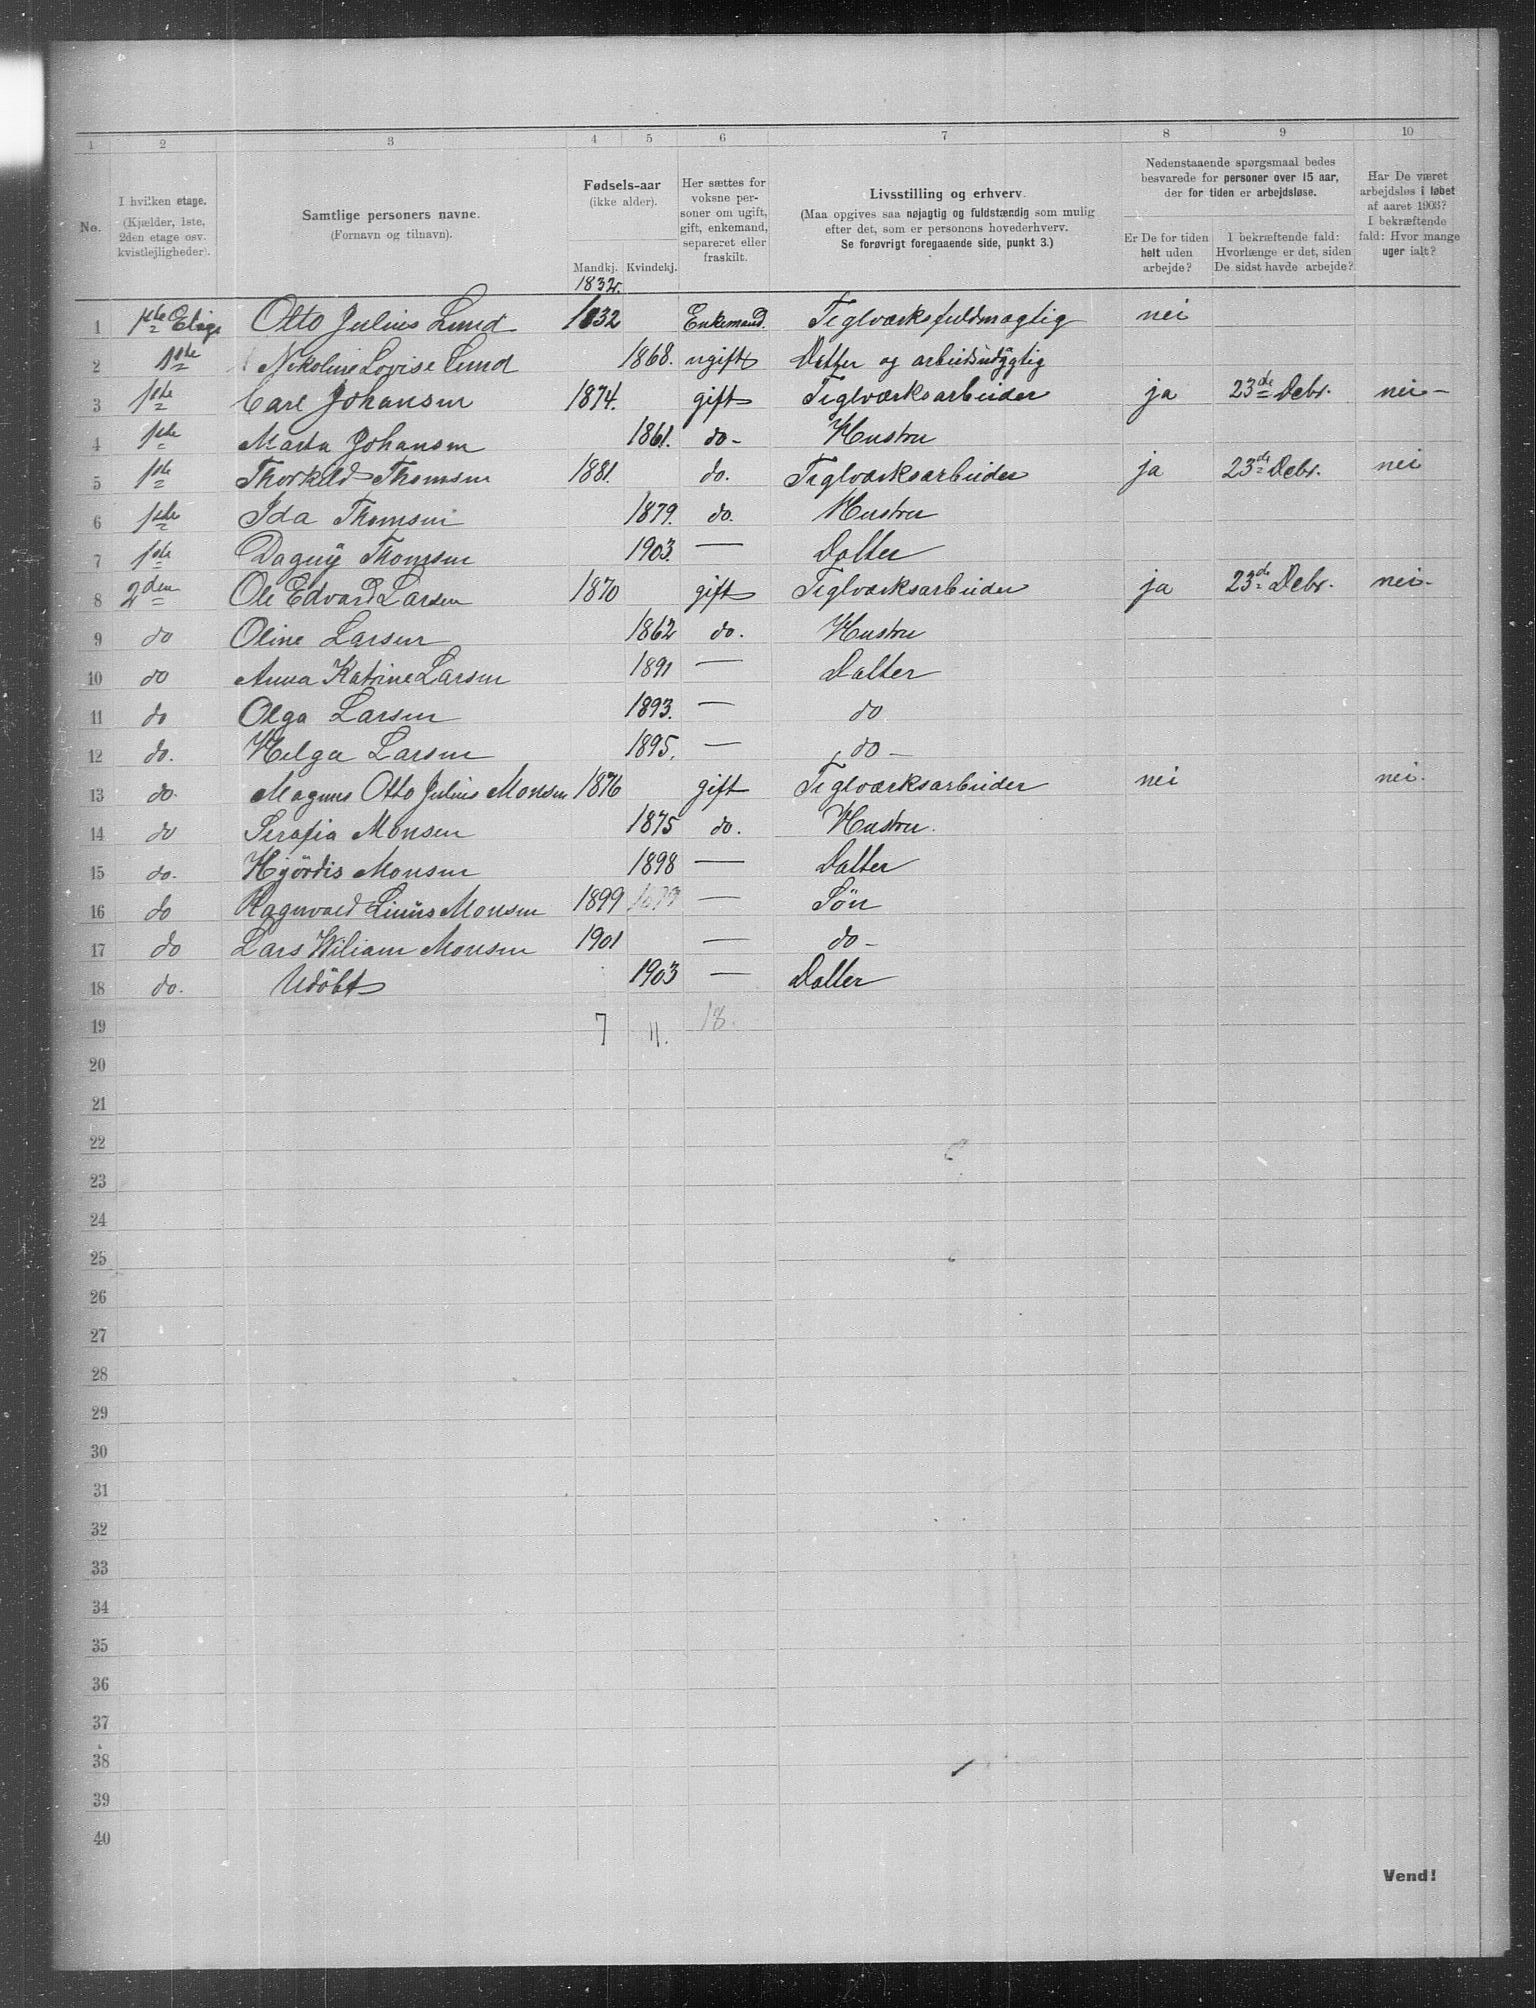 1 2 3 4 5 6 7 8 9 10
No.
I hvilken etage.
(Kjælder, 1ste,
2den etage osv.
kvistlejligheder).
Samtlige personers navne.
(Fornavn og tilnavn).
Fødsels-aar
(ikke alder).
Mandkj. Kvindekj.
1832.
Her sættes for
voksne per-
soner om ugift,
gift, enkemand,
separeret eller
fraskilt.
Livsstilling og erhverv.
(Maa opgives saa nøjagtig og fuldstændig som mulig
efter det, som er personens hovederhverv.
Se forøvrigt foregaaende side, punkt 3.)
Nedenstaaende spørgsmaal bedes
besvarede for personer over 15 aar,
der for tiden er arbejdsløse.
Er De for tiden
helt uden
arbejde?
I bekræftende fald:
Hvorlænge er det, siden
De sidst havde arbejde?
Har De været
arbejdsløs i løbet
af aaret 1903?
I bekræftende
fald: Hvor mange
uger ialt?
1 1ste Etage Otto Julius Lund 1832 Enkemand. Teglværksfuldmægtig nei
2 1ste Nikoline Lovise Lund 1868. ugift Datter og arbeidsudygtig
3 1ste Carl Johansen 1874. gift Teglværksarbeider ja 23de Debr. nei-
4 1ste Marta Johansen 1861. do- Hustru
5 1ste Thorkild Thomsen 1881. do. Teglværksarbeider ja 23de Debr. nei
6 1ste Ida Thomsen 1879. do. Hustru
7 1ste Dagny Thomsen 1903. — Datter
8 2den Ole Edvard Larsen 1870 gift Teglværksarbeider ja 23de Debr. nei-
9 do Oline Larsen 1862 do. Hustru
10 do Anna Katrine Larsen 1891 — Datter
11 do Olga Larsen 1893. — do
12 do. Helga Larsen 1895. — do-
13 do. Magnus Otto Julius Monsen 1876 gift Teglværksarbeider nei nei.
14 do Serafia Monsen 1875 do. Hustru.
15 do. Hjördis Monsen 1898 — Datter
16 do Ragnvald Linus Monsen 1899 — Sön
17 do Lars Wiliam Monsen 1901 — do-
18 do. Udöbt 1903 — Datter
19 7 11. 18.
20
21
22
23
24
25
26
27
28
29
30
31
32
33
34
35
36
37
38
39
40
Vend!